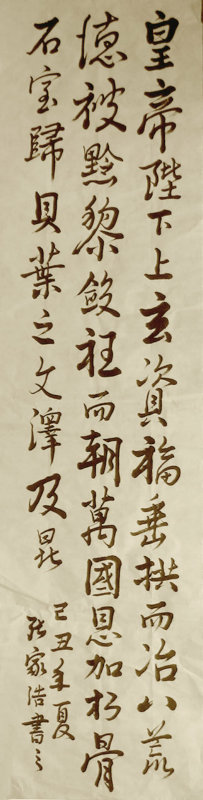 皇帝陛下上玄資福垂拱而治八荒
德被黔黎斂衽而朝萬國恩加朽骨
石室歸貝葉之文澤及昆
己丑年夏
張家浩書之